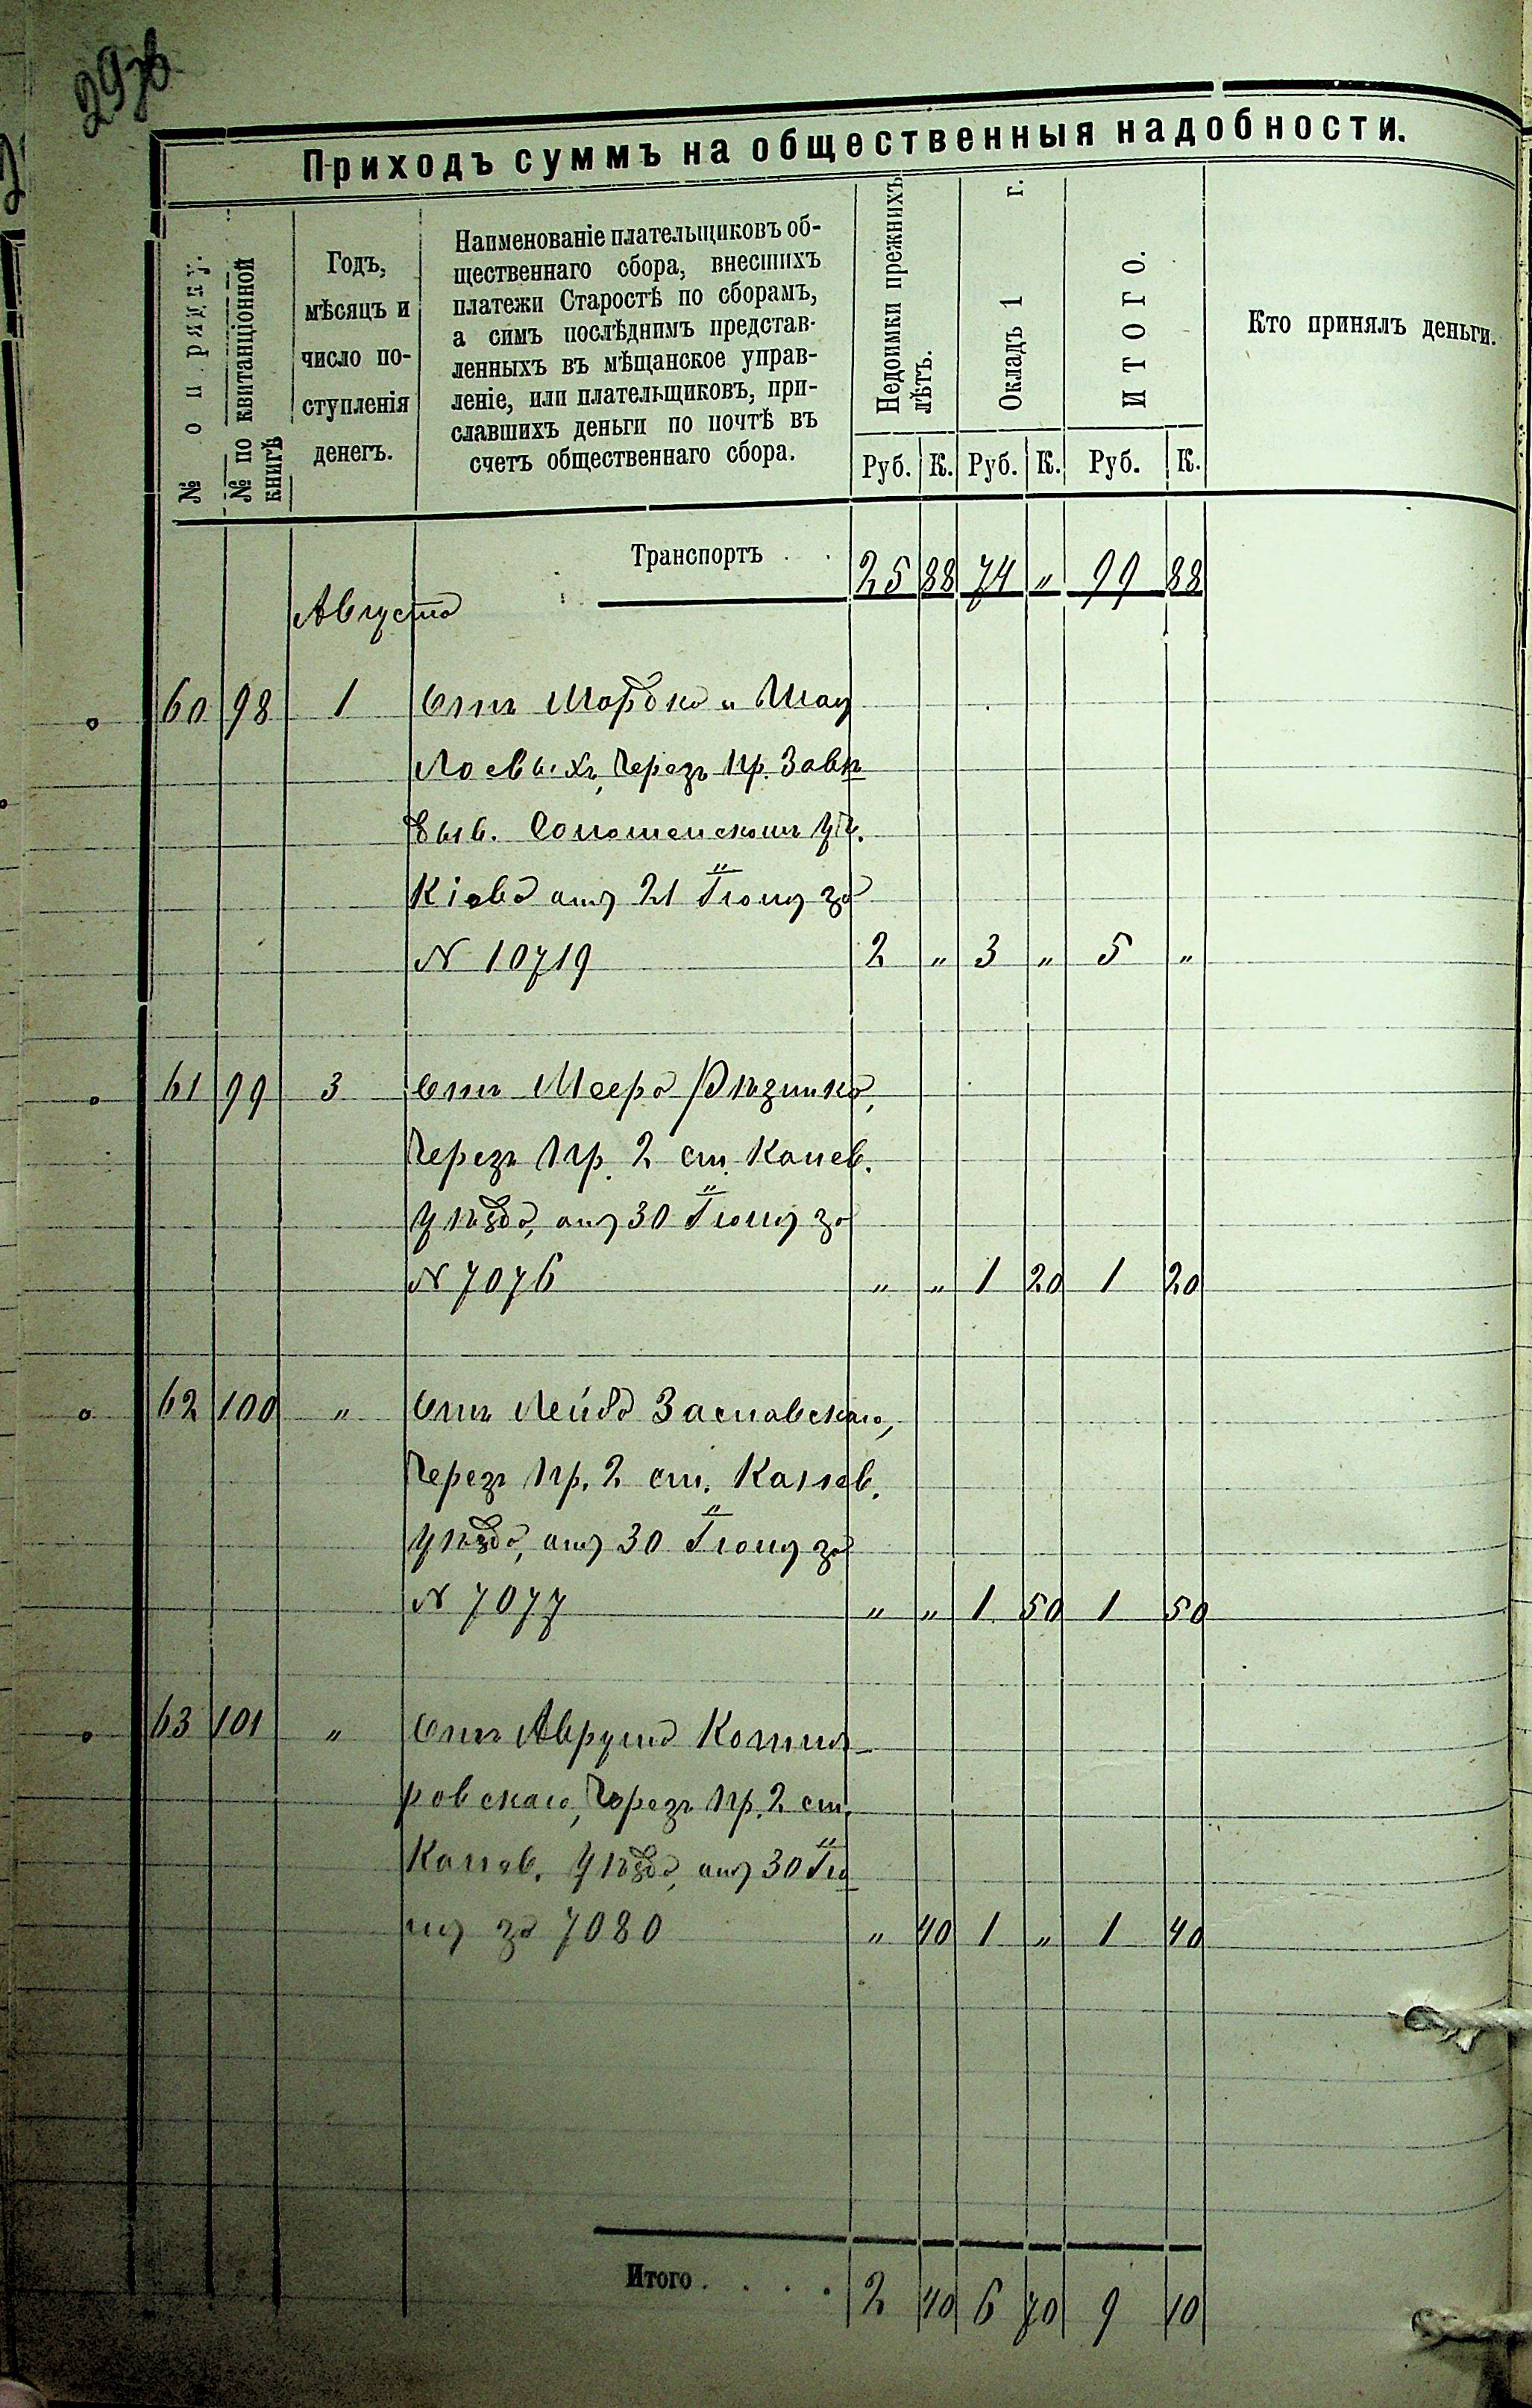 Приходъ суммъ на общественныя надобности.
№ о п рядку.
№ по квитанціонной
книгѣ
Годъ,
мѣсяцъ и
число по-
ступленія
денегъ.
Наименованіе плательщиковъ об-
щественнаго сбора, внесшихъ
платежи Старостѣ по сборамъ,
а симъ послѣднимъ представ-
ленныхъ въ мѣщанское управ-
леніе, или плательщиковъ, при-
славшихъ деньги по почтѣ въ
счетъ общественнаго сбора.
Недоимки прежнихъ
лѣтъ.
Окладъ 1 г.
ИТОГО.
Кто принялъ деньги.
Руб. К. Руб. К. Руб. К.
Транспортъ . . 25 88 74 „ 99 88
Августа
60 98 1 Отъ Мордко и Шая
Лоевыхъ, Черезъ Пр. Завѣ
дыв. Соломенскимъ уч.
Кіева отъ 21 Іюня за
N 10719 2 „ 3 „ 5 „
61 99 3 Отъ Меера
Черезъ Пр. 2 ст. Канев.
уѣзда, отъ 30 Іюня за
N 7076 „ „ 1 20 1 20
62 100 „ Отъ Лейба Заславскаго,
Черезъ Пр. 2 ст. Канев.
уѣзда, отъ 30 Іюня за
N 7077 „ „ 1 50 1 50
63 101 „ Отъ Аврума
ровскаго, Черезъ Пр. 2 ст.
Канев. уѣзда, отъ 30 Ію
ня за 7080 „ 40 1 „ 1 40
Итого . . . . 2 40 6 70 9 10